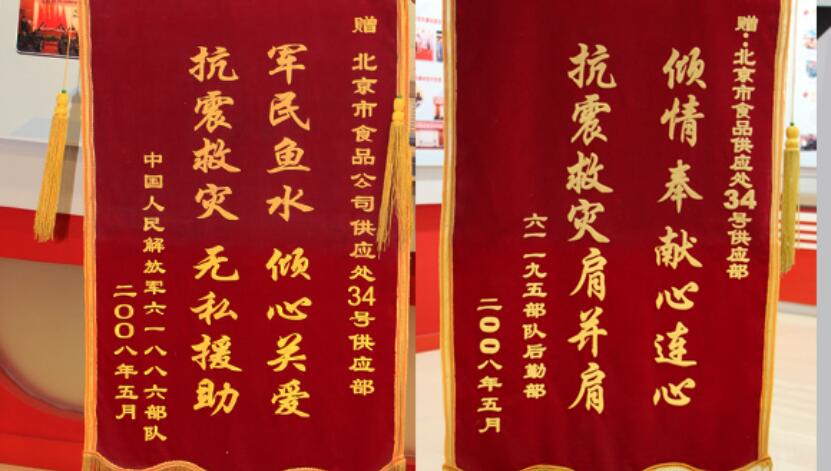 赠 北京市食品公司供应处34号供应部
军民鱼水 倾心关爱
抗震救灾 无私援助
中国人民解放军六一八八六部队
二〇〇八年五月
赠：北京市食品供应处34号供应部
倾情奉献心连心
抗震救灾肩并肩
六一一九五部队后勤部
二〇〇八年五月